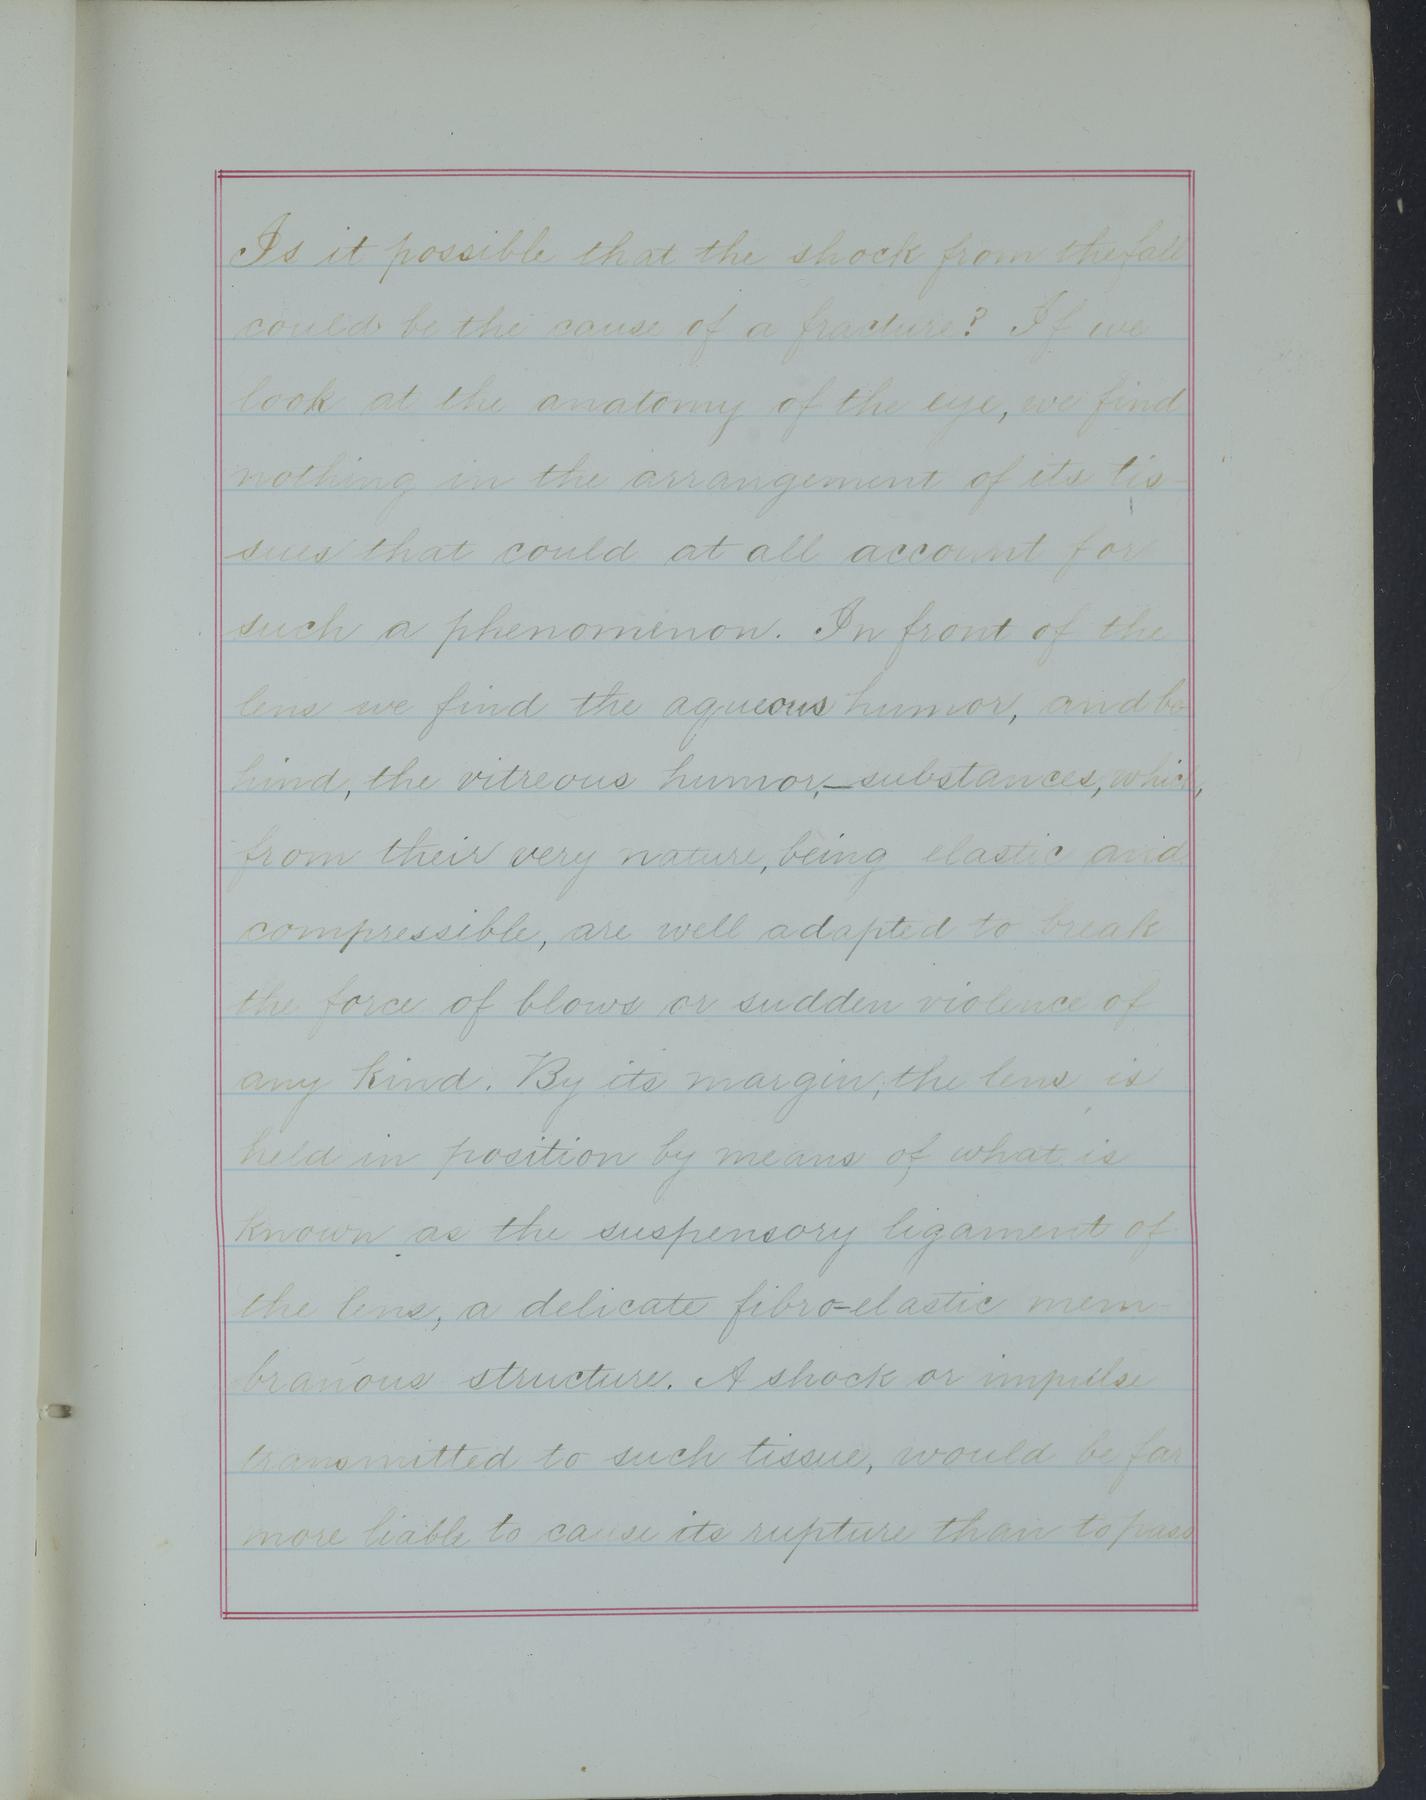 Is it possible that the shock from the fall
could be the cause of a fracture? If we
look at the anatomy of the eye, we find
nothing in the arrangement of its tis-
sues that could at all account for
such a phenomenon. In front of the
lens we find the aqueous humor, and be
hind, the vitreous humor,—substances, which,
from their very nature, being elastic and
compressible, are well adapted to break
the force of blows or sudden violence of
any kind. By its margin, the lens is
held in position by means of what is
known as the suspensory ligament of
the lens, a delicate fibro-elastic mem-
branous structure. A shock or impulse
transmitted to such tissue, would be far
more liable to cause its rupture than to pass